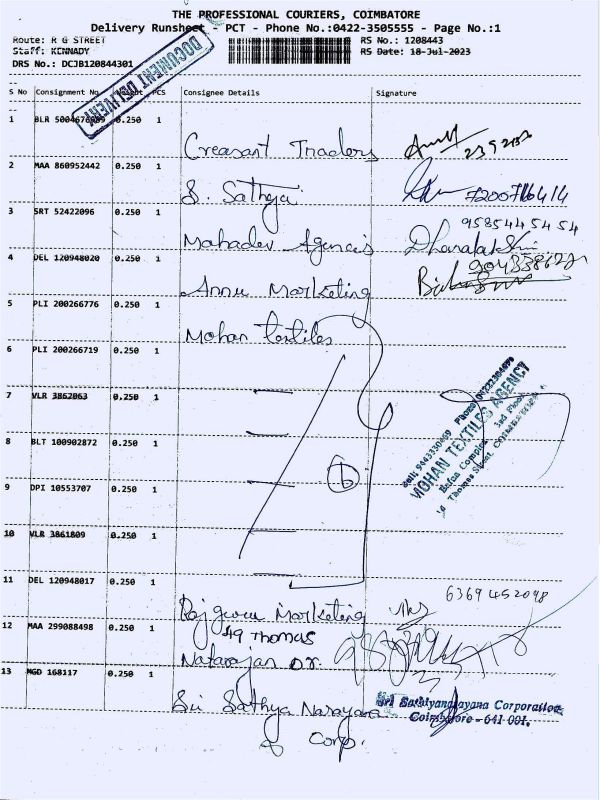 THE PROFESSIONAL COURIERS, COIMBATORE
Delivery Runsheet - PCT - Phone No.:0422-3505555 - Page No.:1
Route: R G STREET RS No.: 1208443
Staff: KENNADY RS Date: 18-Jul-2023
DRS No.: DCJB120844301
DOCUMENT DELIVERY
S No Consignment No Weight PCS Consignee Details Signature
1 BLR 0.250 1
Creasant Traders
2 MAA 860952442 0.250 1
S. Sathya 7200716414
3 SRT 52422096 0.250 1 9585445454
Mahadev Agencis
4 DEL 120948020 0.250 1
Annu Marketing
5 PLI 200266776 0.250 1
Mohan textiles
6 PLI 200266719 0.250 1
7 VLR 3862063 0.250 1
8 BLT 100902872 0.250 1
9 DPI 10553707 0.250 1
10 VLR 3861809 0.250 1
6
MOHAN TEXTILES AGENCY
11 DEL 120948017 0.250 1 6369452098
Rajguru Marketing
12 MAA 299088498 0.250 1
49 THOMAS
Natarajan Dr.
13 MGD 168117 0.250 1
Sri Sathya Narayana
Corp.
Sri Sathyanarayana Corporation
Coimbatore - 641 001.